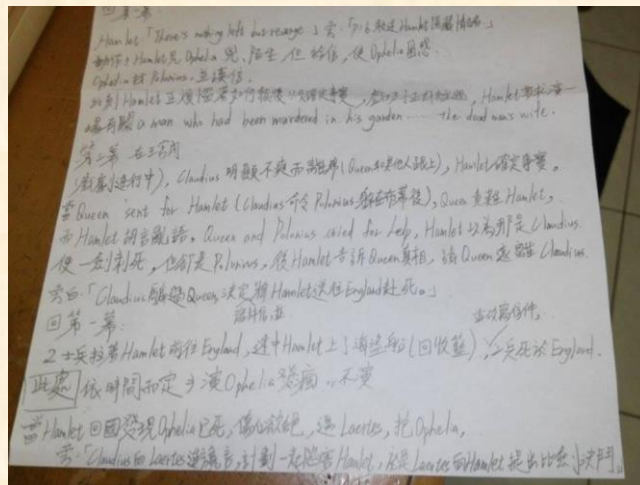 回第一幕
Hamlet「There's nothing left but revenge」旁:「
動作:Hamlet見Ophelia 哭,陌生,但 給信,使Ophelia困惑.
Ophelia 找 Polonius,並讀信.
Hamlet要求演一
場有關 a man who had been murdered in his garden ...... the dead man's wife.
第二幕 在王宮內
(戲劇進行中), Claudius 明顯不爽而離席(Queen和其他人跟上), Hamlet確定事實。
Queen sent for Hamlet (Claudius命令Polonius躲在布幕後), Queen 責難 Hamlet,
而 Hamlet 胡言亂語, Queen and Polonius cried for help, Hamlet以為那是Claudius.
便一劍刺死,也就是Polonius,後Hamlet告訴Queen真相,請Queen遠離Claudius.
旁白:「Claudius Queen,決定將Hamlet送往England赴死。」
回第一幕:
2士兵拉著Hamlet前往England,途中Hamlet上了海盜船(回收籃),二兵死於England.
此處 依時間而定 演Ophelia 不實
Hamlet回國發現Ophelia已死,傷心欲絕,遇Laertes,抱Ophelia,
旁:「Claudius向Laertes進讒言,計劃一起陷害Hamlet,於是Laertes向Hamlet提出比
決鬥」